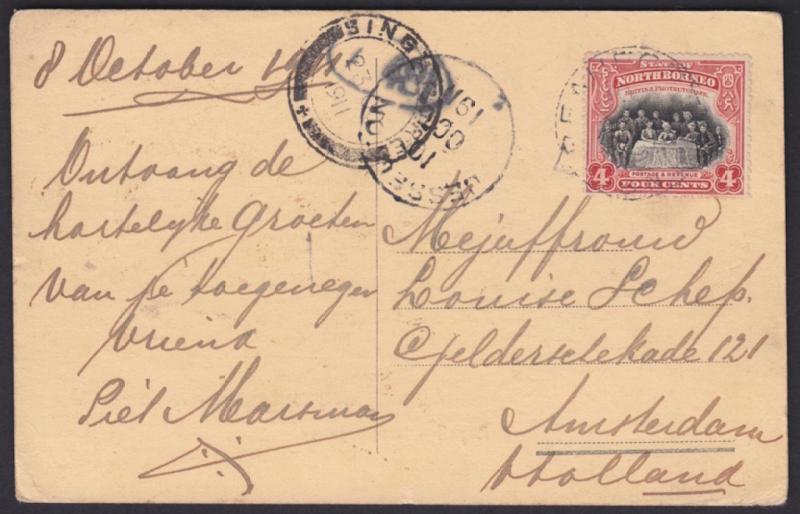 8 October
Ontvang de
hartelyke Groeten
van je toegenegen
vriend
Piet Marsman
SINGAPORE
23
1911
JESSELTON
10
OC
191
STATE OF
NORTH BORNEO
BRITISH PROTECTORATE
4 POSTAGE & REVENUE 4
FOUR CENTS
Mejuffrouw
Louise Schep.
Gelderschekade 121
Amsterdam
Holland